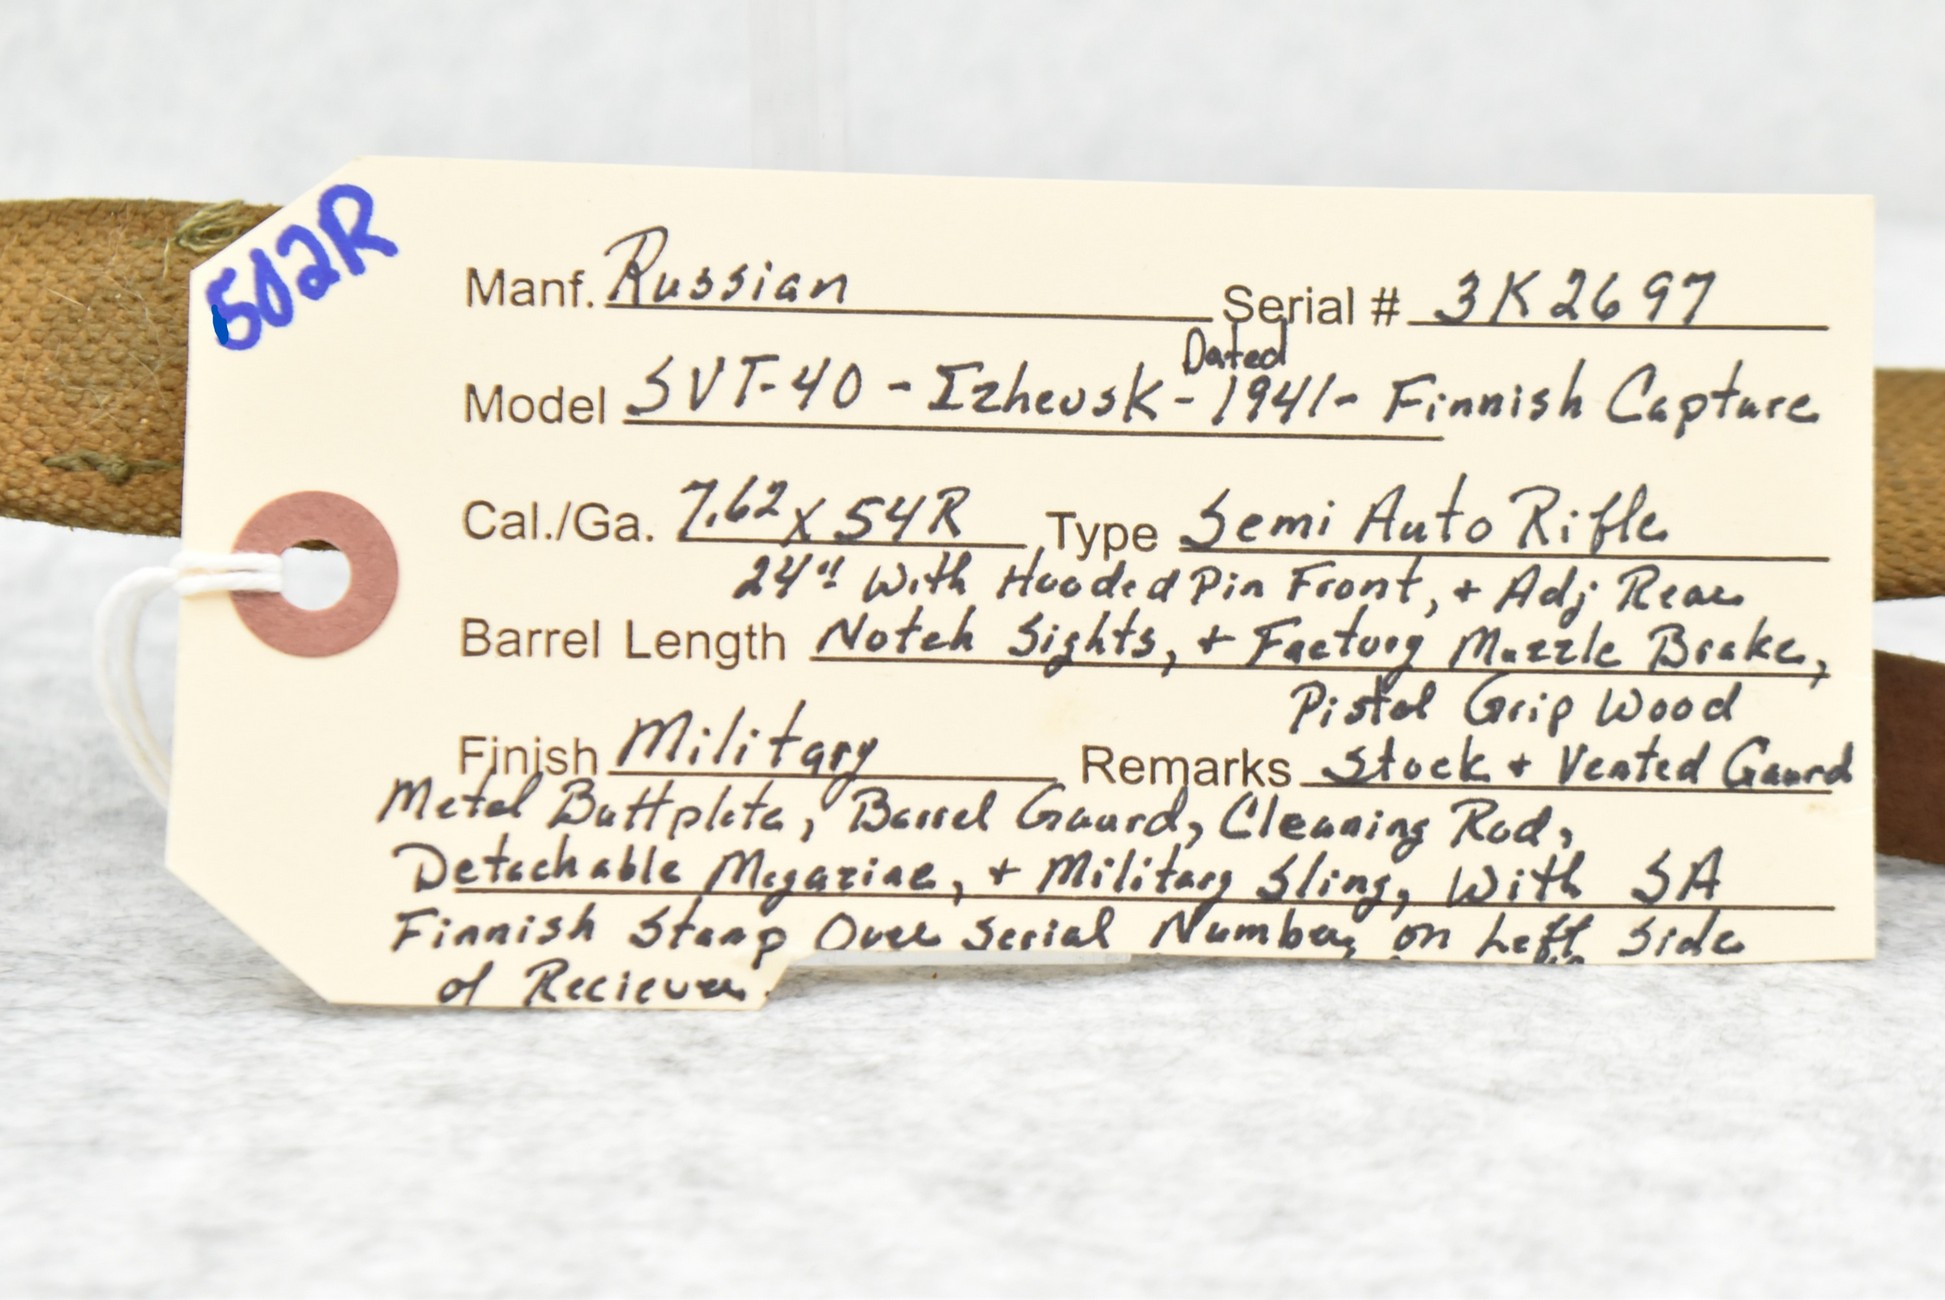 502R
Manf. Russian Serial # 3K2697
Dated
Model SVT-40 - Izhevsk - 1941 - Finnish Capture
Cal./Ga. 7.62 x 54R Type Semi Auto Rifle
24" With Hooded Pin Front, + Adj Rear
Barrel Length Notch Sights, + Factory Muzzle Brake,
Pistol Grip Wood
Finish Military Remarks Stock + Vented Gaurd
Metal Buttplate, Barrel Gaurd, Cleaning Rod,
Detachable Magazine, + Military Sling, With SA
Finnish Stamp Over Serial Number, on Left Side
of Reciever.